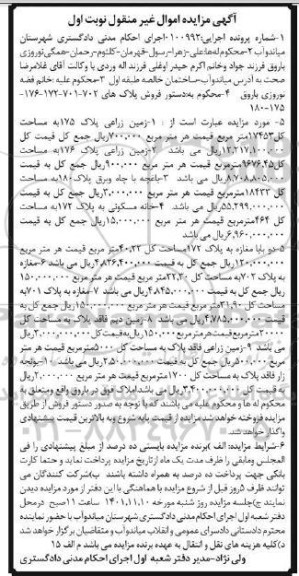 آگهی مزایده اموال غیر منقول نوبت اول
۱-شماره پرونده اجرایی: ۱۰۰۹۹۲-اجرای احکام مدنی دادگستری شهرستان
میاندوآب ۲-محکوم له ها: علی-زهرا-رسول-قهرمان-کلثوم-رحمان-همگی نوروزی
باروق فرزند جواد وخانم اکرم حیدر اوغلی فرزند اله وردی با وکالت آقای غلامرضا
صحت به آدرس میاندوآب-ساختمان خالصه طبقه اول ۳-محکوم علیه: خانم فضه
نوروزی باروق ۴-محکوم به: دستور فروش پلاک های ۷۰۲-۷۰۱-۱۷۲-۱۷۶-
۱۷۵-۱۸۰
۵- مورد مزایده عبارت است از : ۱-زمین زراعی پلاک ۱۷۵به مساحت
کل۱۷۴۵۳متر مربع قیمت هر متر مربع ۷۰۰,۰۰۰ریال جمع کل قیمت کل
۱۲,۲۱۷,۱۰۰,۰۰۰ریال می باشد ۲-زمین زراعی پلاک ۱۷۶به مساحت
کل ۹۶۷۶,۴۵مترمربع قیمت هر متر مربع ۹۰۰,۰۰۰ریال جمع کل به قیمت
۸,۷۰۸,۸۰۵,۰۰۰ریال می باشد ۳-باغچه با چاه وبرق پلاک ۱۸۰به مساحت
کل ۱۸۴۳۳مترمربع قیمت هر متر مربع ۳,۰۰۰,۰۰۰ریال جمع کل به قیمت
۵۵,۲۹۹,۰۰۰,۰۰۰ریال می باشد ۴-خانه مسکونی به پلاک ۱۷۲به مساحت
کل ۴۶۴مترمربع قیمت هر متر مربع ۱۵,۰۰۰,۰۰۰ریال جمع کل به قیمت
۶,۹۶۰,۰۰۰,۰۰۰ریال می باشد
۵-دو بابا مغازه به پلاک ۱۷۲مساحت کل ۴۰,۲۲متر مربع قیمت هر متر مربع
۱۲۰,۰۰۰,۰۰۰ریال جمع کل به قیمت ۴,۸۲۶,۴۰۰,۰۰۰ریال می باشد ۶-مغازه
به پلاک ۷۰۲به مساحت کل ۳۲,۳۰متر مربع قیمت هر متر مربع ۱۵۰,۰۰۰,۰۰۰
ریال جمع کل به قیمت ۴,۸۴۵,۰۰۰,۰۰۰ریال می باشد ۷-مغازه به پلاک ۷۰۱به
مساحت کل ۳۱,۹۰متر مربع قیمت هر متر مربع ۱۵۰,۰۰۰,۰۰۰ریال جمع کل به
قیمت ۴,۷۸۵,۰۰۰,۰۰۰ریال می باشد ۸-زمین دیم فاقد پلاک به مساحت کل
۲۰۰۰۰مترمربع قیمت هر متر مربع ۱۵۰,۰۰۰ریال به قیمت کل ۳,۰۰۰,۰۰۰,۰۰۰ریال
می باشد ۹-زمین زراعی فاقد پلاک به مساحت کل ۵۰۰۰مترمربع قیمت هر متر
مربع ریال جمع کل به قیمت ۲,۵۰۰,۰۰۰,۰۰۰ریال می باشد ۱۰-یونجه
زار فاقد پلاک به مساحت کل ۱۷۰۰مترمربع قیمت هر متر مربع ۲,۰۰۰,۰۰۰ریال
به قیمت کل ۳,۴۰۰,۰۰۰,۰۰۰ریال می باشد املاک فوق در باروق واقع ومتعلق به
محکوم له ها و محکوم علیه می باشد که با توجه به صدور دستور فروش از طریق
مزایده فروخته خواهد شد مزایده از قیمت پایه شروع وبه بالاترین قیمت پیشنهادی
واگذار خواهد شد.
۶-شرایط مزایده: الف )برنده مزایده بایستی ده درصد از مبلغ پیشنهادی را فی
المجلس ومابقی را ظرف مدت یک ماه از تاریخ مزایده پرداخت نماید و حتما کارت
بانکی جهت پرداخت ده درصد به همراه داشته باشند ب)شرکت کنندگان می
توانند ظرف ۵روز قبل از شروع مزایده با هماهنگی با این دفتر از مورد مزایده دیدن
نمایند ج)جلسه مزایده روز شنبه مورخه ۱۴۰۱,۱۱,۱۰ ساعت ۱۱صبح درمحل
دفتر شعبه اول اجرای احکام مدنی دادگستری شهرستان میاندوآب با حضور نماینده
محترم دادستانی دادسرای عمومی و انقلاب میاندوآب و متقاضیان برگزار خواهد شد
د)کلیه هزینه های نقل و انتقال به عهده برنده مزایده می باشد م الف ۱۵
ولی نژاد-مدیر دفتر شعبه اول اجرای احکام مدنی دادگستری